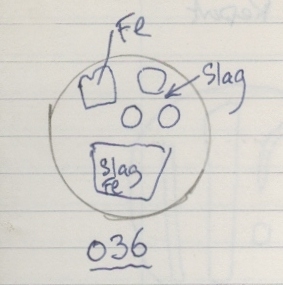 Fe
Slag
Slag
Fe
036